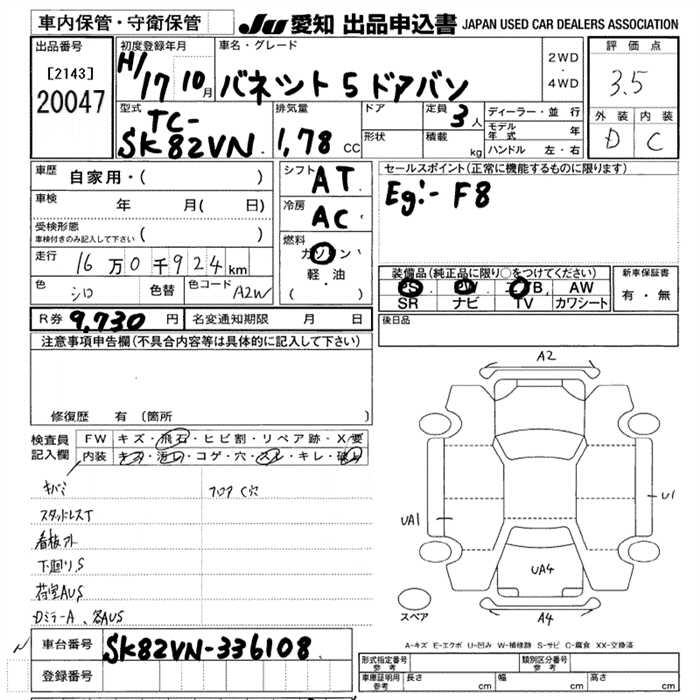 車内保管・守衛保管
JU 愛知 出品申込書 JAPAN USED CAR DEALERS ASSOCIATION
出品番号
[2143]
20047
初度登録年月
H/17 10月
車名・グレード
バネット 5ドアバン
2WD
・
4WD
評価点
3.5
外装 内装
D C
型式
TC-
SK82VN
排気量
1,78 CC
ドア
形状
定員 3人
積載 kg
ディーラー・並行
モデル年式 年
ハンドル 左・右
車歴 自家用・( )
車検 年 月( 日)
受検形態
車検付きのみ記入して下さい ( )
走行 16万0千924km
色 シロ 色替 色コード A2W
シフト AT
冷房 AC
燃料
ガソリン
軽・油
( )
セールスポイント(正常に機能するものに限ります)
Eg:- F8
装備品(純正品に限り○をつけてください)
PS PW エアB AW
SR ナビ TV カワシート
新車保証書
有・無
R券 9,730円 名変通知期限 月 日
後日品
注意事項申告欄(不具合内容等は具体的に記入して下さい)
修復歴 有 (箇所 )
検査員
記入欄
FW キズ・飛石・ヒビ割・リペア跡・X要
内装 キズ・汚レ・コゲ・穴・スレ・キレ・破レ
キバミ フロアC穴
スタッドレスT
看板アト
下廻りS
荷室AUS
Dミラー A、各AUS
A2
UA1
U1
UA4
A4
スペア
A-キズ E-エクボ U-凹み W-補修跡 S-サビ C-腐食 XX-交換済
車台番号 SK82VN-336108
登録番号
形式指定番号
参考
類別区分番号
参考
車庫証明用
参考
長さ cm 幅 cm 高さ cm